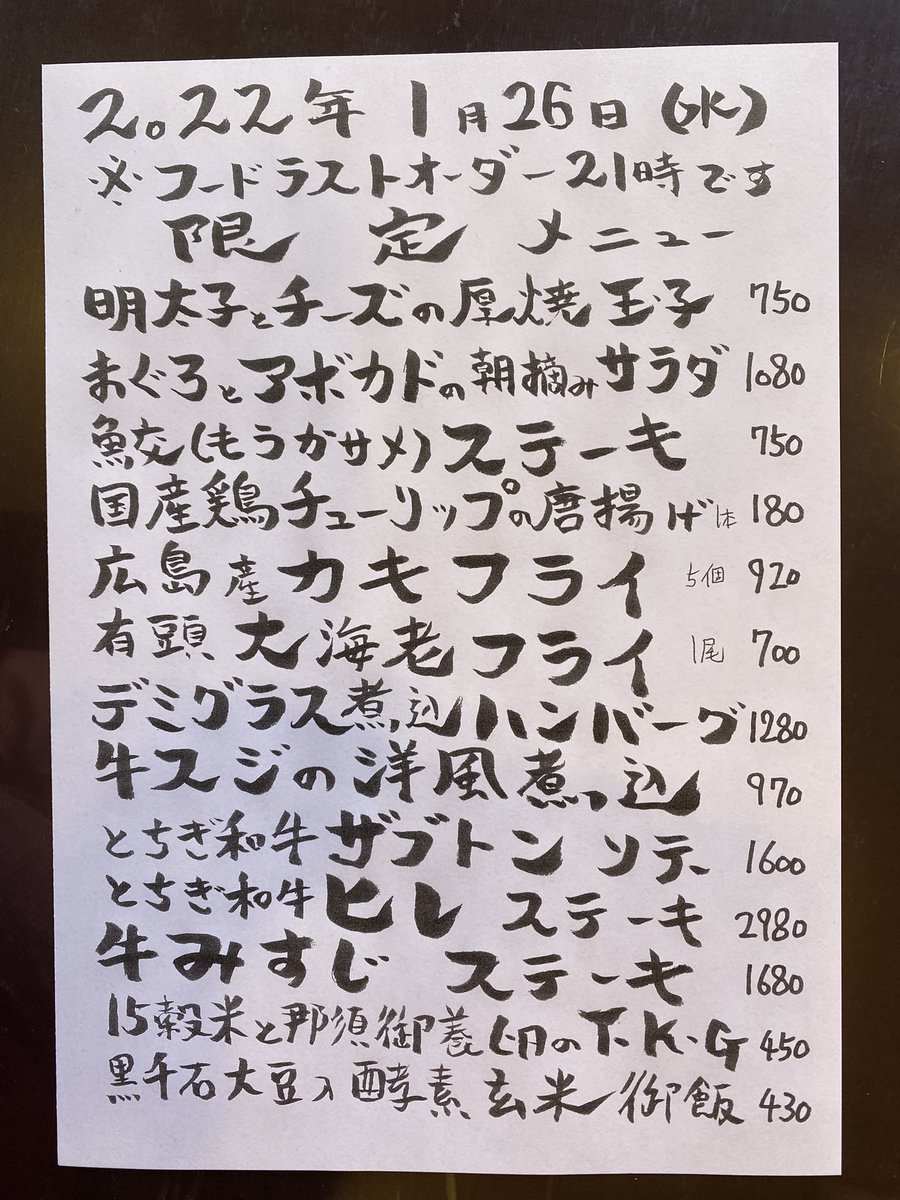 2022年 1月26日(水)
※フードラストオーダー21時です
限定メニュー
明太子とチーズの厚焼玉子 750
まぐろとアボカドの朝摘みサラダ 1080
鮫(もうかサメ)ステーキ 750
国産鶏チューリップの唐揚げ 1本 180
広島産カキフライ 5個 920
有頭大海老フライ 1尾 700
デミグラス煮込ハンバーグ 1280
牛スジの洋風煮込 970
とちぎ和牛ザブトンソテー 1600
とちぎ和牛ヒレステーキ 2980
牛みすじステーキ 1680
15穀米と那須御養卵のT.K.G 450
黒千石大豆入酵素玄米御飯 430